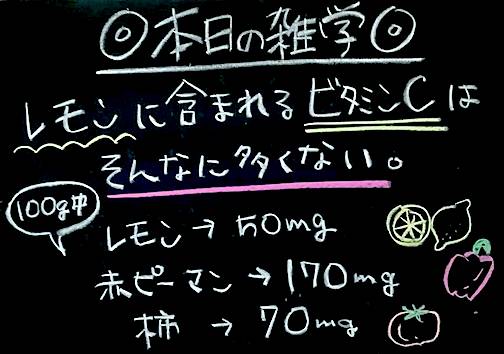 ◎本日の雑学◎
レモンに含まれるビタミンCは
そんなに多くない。
100g中
レモン→50mg
赤ピーマン→170mg
柿→70mg